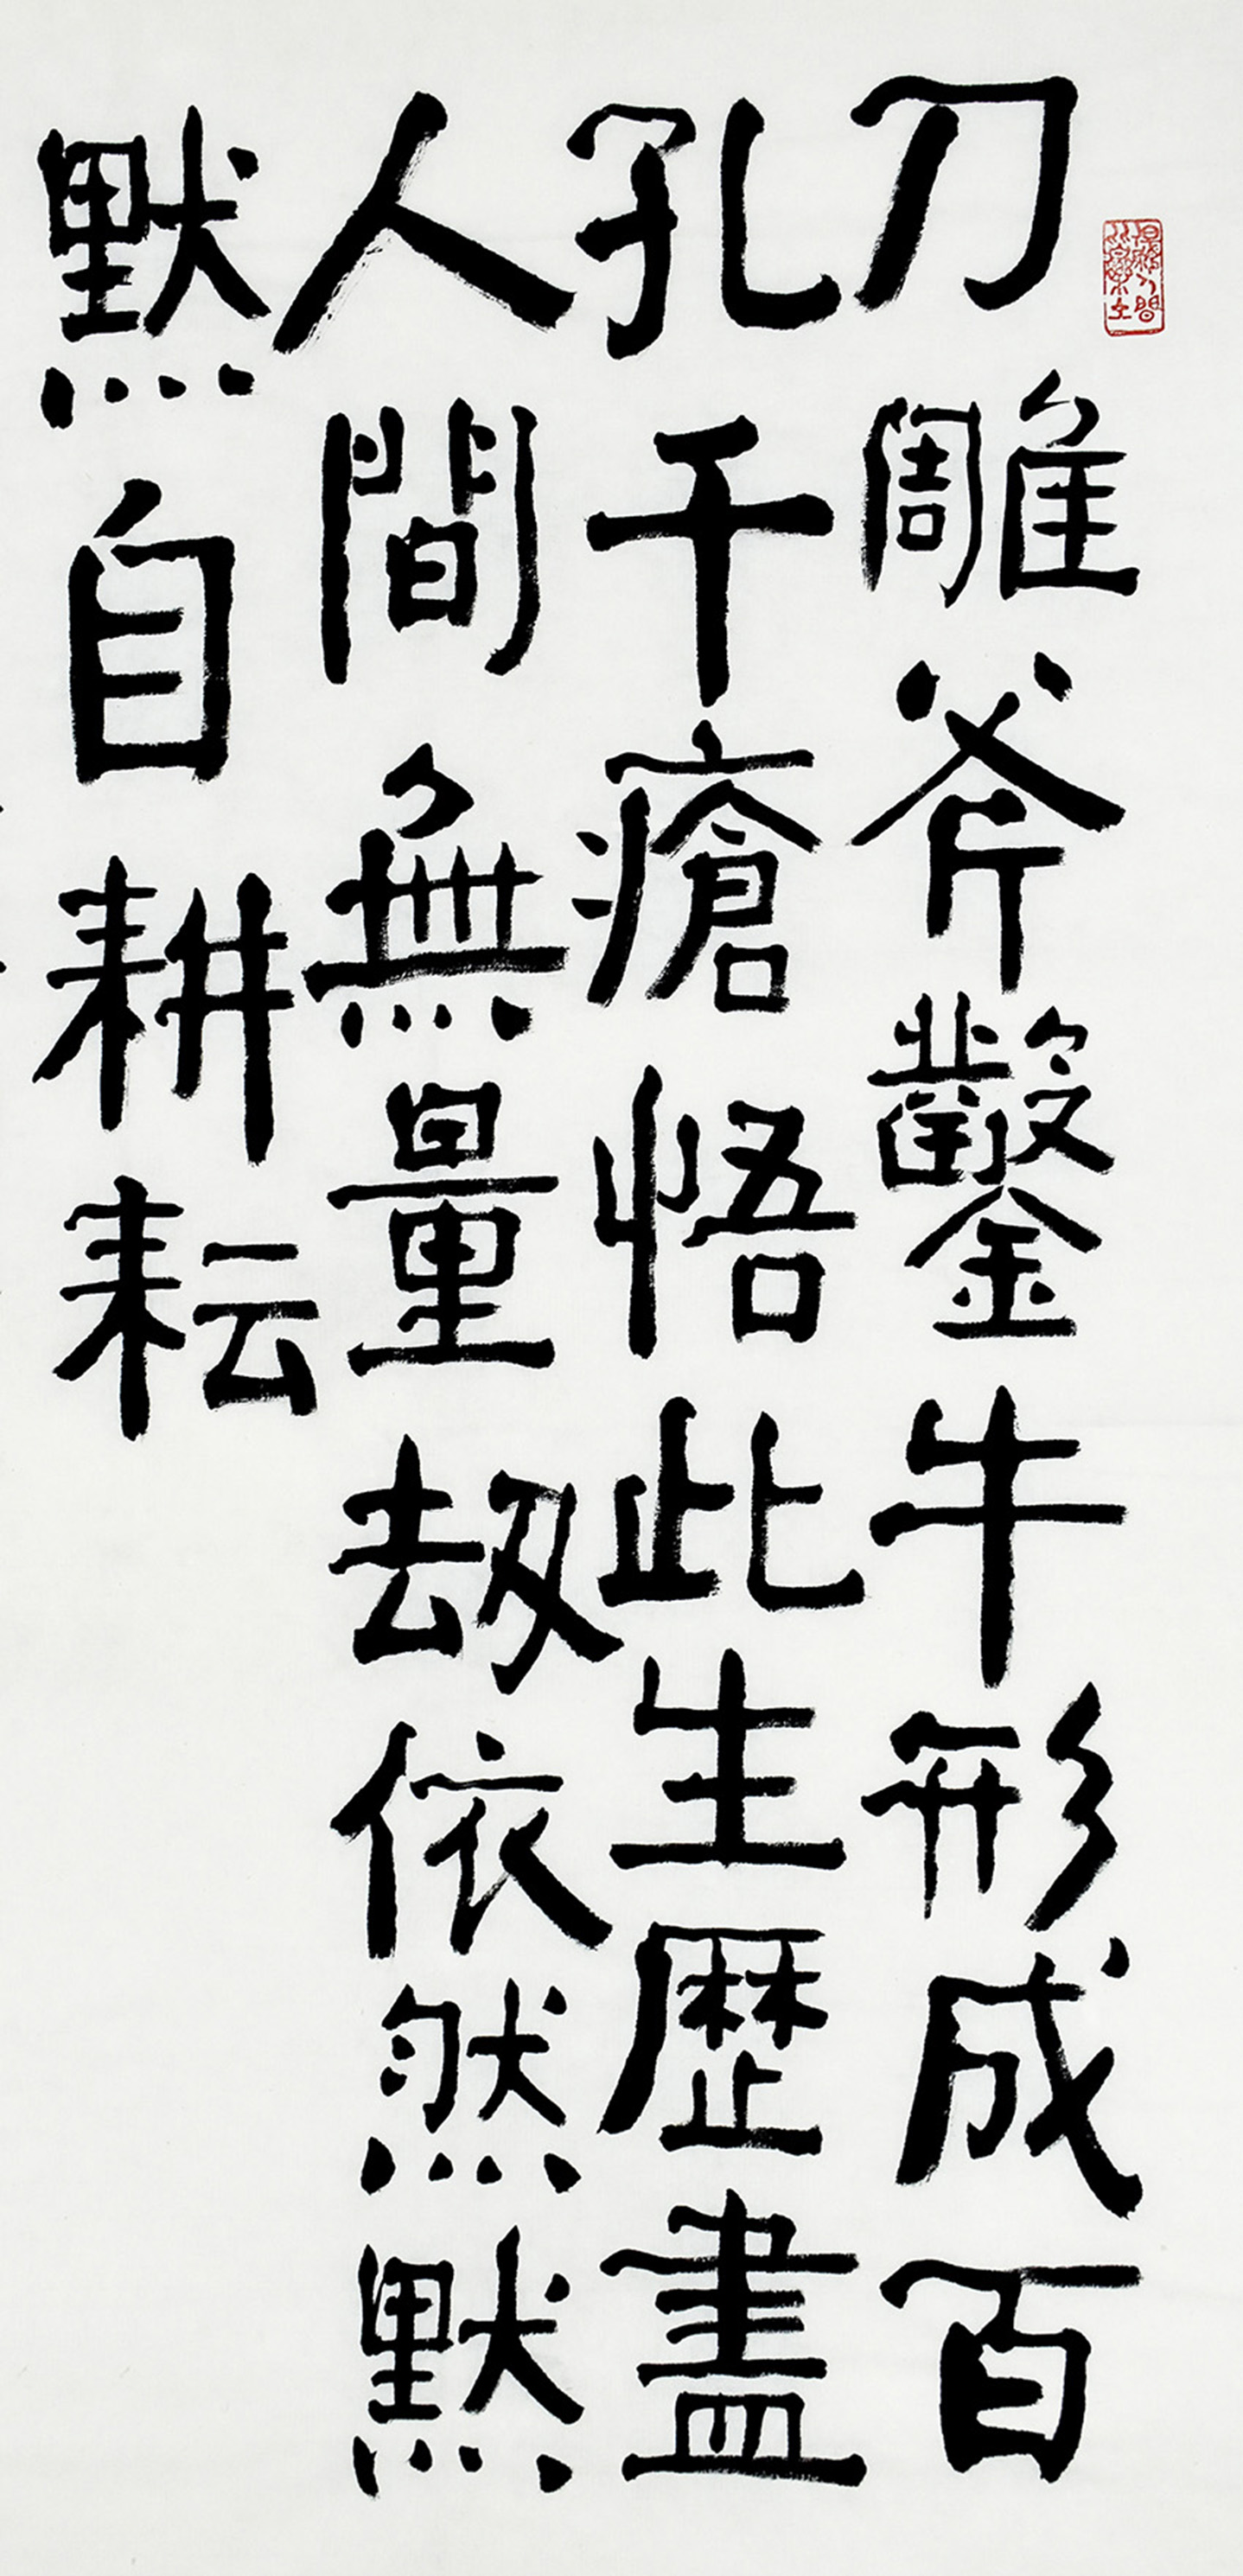 刀雕斧鑿牛形成百
孔千瘡悟此生歴盡
人間無量刼依然默
默自耕耘